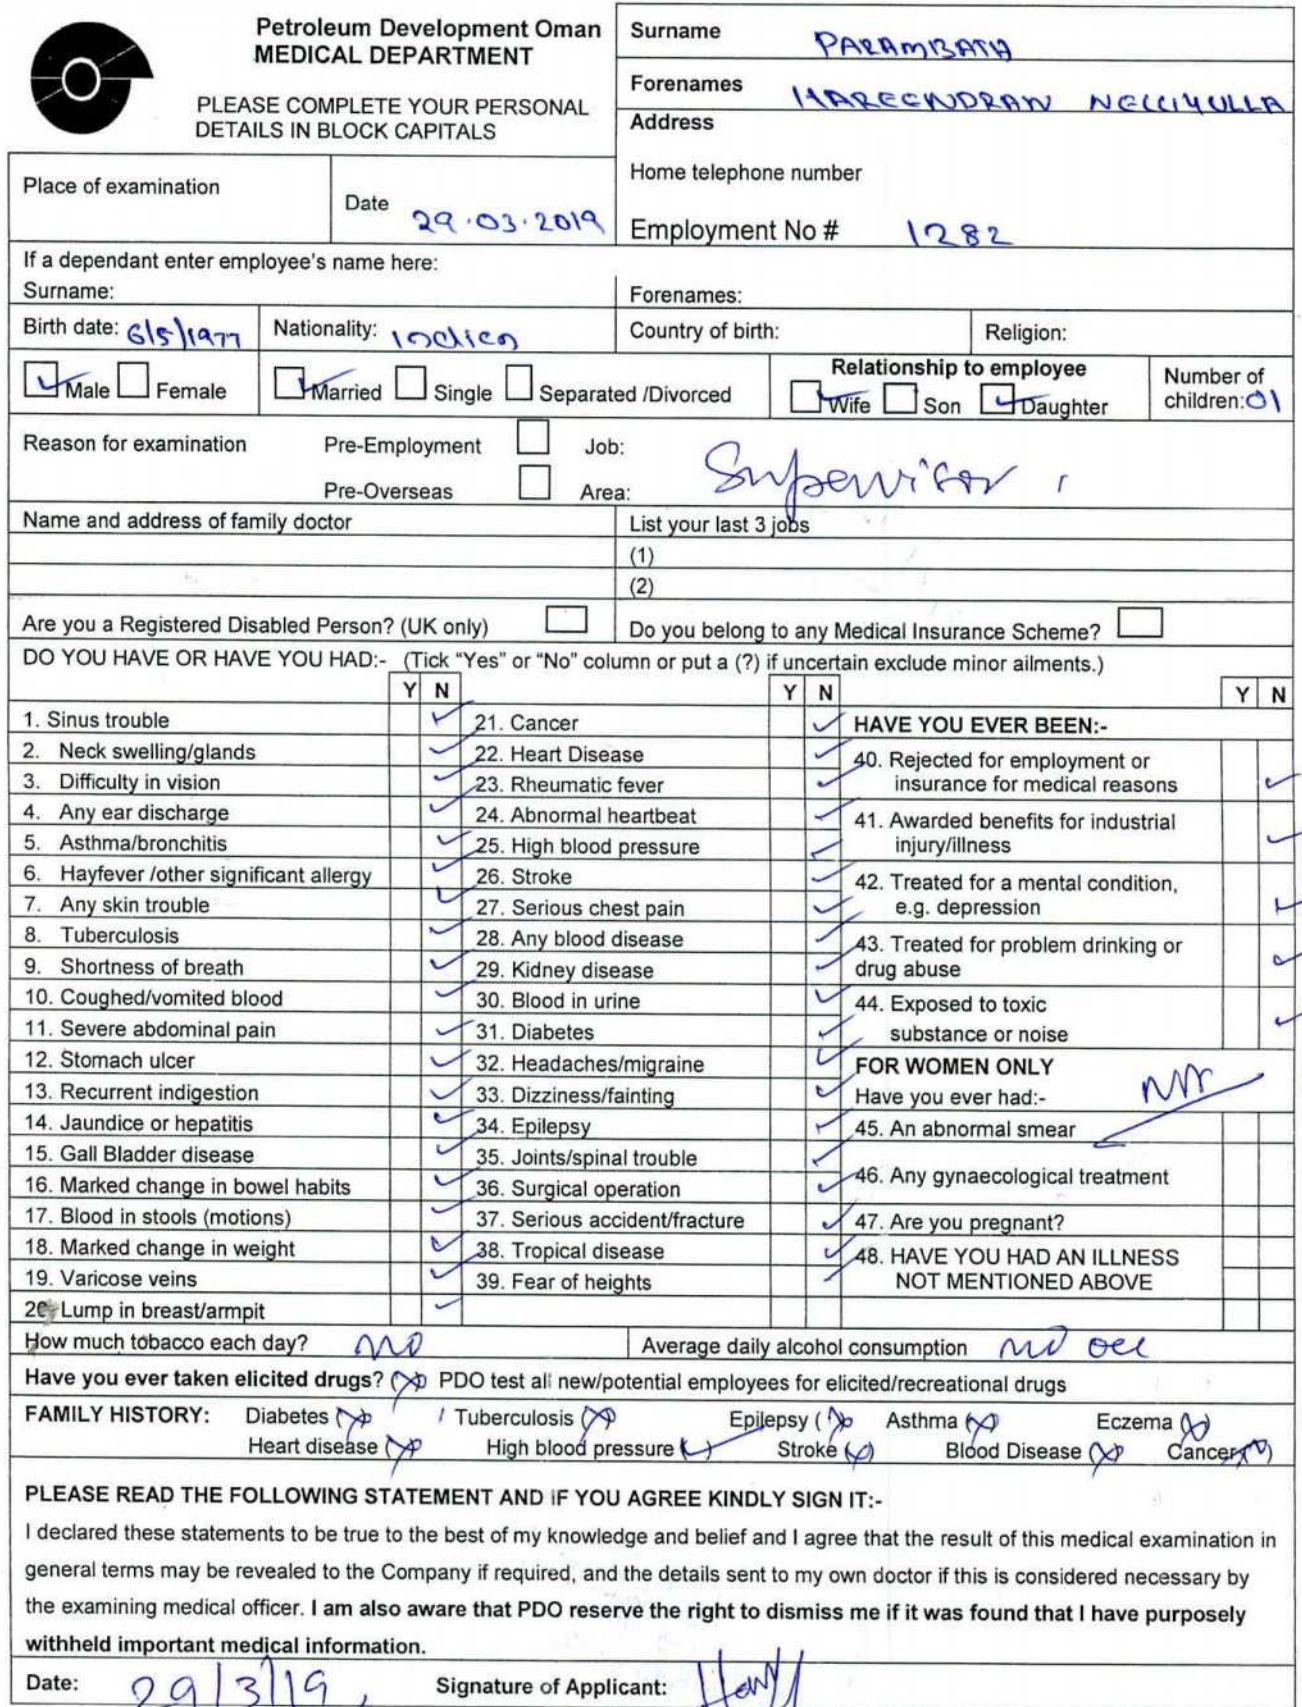 Petroleum Development Oman
MEDICAL DEPARTMENT
PLEASE COMPLETE YOUR PERSONAL
DETAILS IN BLOCK CAPITALS
Surname PARAMBATH
Forenames HAREENDRAN NELLIYULLA
Address
Home telephone number
Employment No # 1282
Place of examination
Date 29.03.2019
If a dependant enter employee's name here:
Surname:
Forenames:
Birth date: 6/5/1977 Nationality: Indian Country of birth: Religion:
Male Female Married Single Separated /Divorced
Relationship to employee
Wife Son Daughter
Number of
children: 01
Reason for examination Pre-Employment Job: Supervisor
Pre-Overseas Area:
Name and address of family doctor List your last 3 jobs
(1)
(2)
Are you a Registered Disabled Person? (UK only) Do you belong to any Medical Insurance Scheme?
DO YOU HAVE OR HAVE YOU HAD:- (Tick "Yes" or "No" column or put a (?) if uncertain exclude minor ailments.)
Y N Y N Y N
1. Sinus trouble
2. Neck swelling/glands
3. Difficulty in vision
4. Any ear discharge
5. Asthma/bronchitis
6. Hayfever /other significant allergy
7. Any skin trouble
8. Tuberculosis
9. Shortness of breath
10. Coughed/vomited blood
11. Severe abdominal pain
12. Stomach ulcer
13. Recurrent indigestion
14. Jaundice or hepatitis
15. Gall Bladder disease
16. Marked change in bowel habits
17. Blood in stools (motions)
18. Marked change in weight
19. Varicose veins
20. Lump in breast/armpit
21. Cancer
22. Heart Disease
23. Rheumatic fever
24. Abnormal heartbeat
25. High blood pressure
26. Stroke
27. Serious chest pain
28. Any blood disease
29. Kidney disease
30. Blood in urine
31. Diabetes
32. Headaches/migraine
33. Dizziness/fainting
34. Epilepsy
35. Joints/spinal trouble
36. Surgical operation
37. Serious accident/fracture
38. Tropical disease
39. Fear of heights
HAVE YOU EVER BEEN:-
40. Rejected for employment or
insurance for medical reasons
41. Awarded benefits for industrial
injury/illness
42. Treated for a mental condition,
e.g. depression
43. Treated for problem drinking or
drug abuse
44. Exposed to toxic
substance or noise
FOR WOMEN ONLY
Have you ever had:-
45. An abnormal smear
46. Any gynaecological treatment
47. Are you pregnant?
48. HAVE YOU HAD AN ILLNESS
NOT MENTIONED ABOVE
How much tobacco each day? NO Average daily alcohol consumption
Have you ever taken elicited drugs? ( ) PDO test all new/potential employees for elicited/recreational drugs
FAMILY HISTORY: Diabetes ( ) Tuberculosis ( ) Epilepsy ( ) Asthma ( ) Eczema ( )
Heart disease ( ) High blood pressure ( ) Stroke ( ) Blood Disease ( ) Cancer ( )
PLEASE READ THE FOLLOWING STATEMENT AND IF YOU AGREE KINDLY SIGN IT:-
I declared these statements to be true to the best of my knowledge and belief and I agree that the result of this medical examination in
general terms may be revealed to the Company if required, and the details sent to my own doctor if this is considered necessary by
the examining medical officer. I am also aware that PDO reserve the right to dismiss me if it was found that I have purposely
withheld important medical information.
Date: 29/3/19 Signature of Applicant: